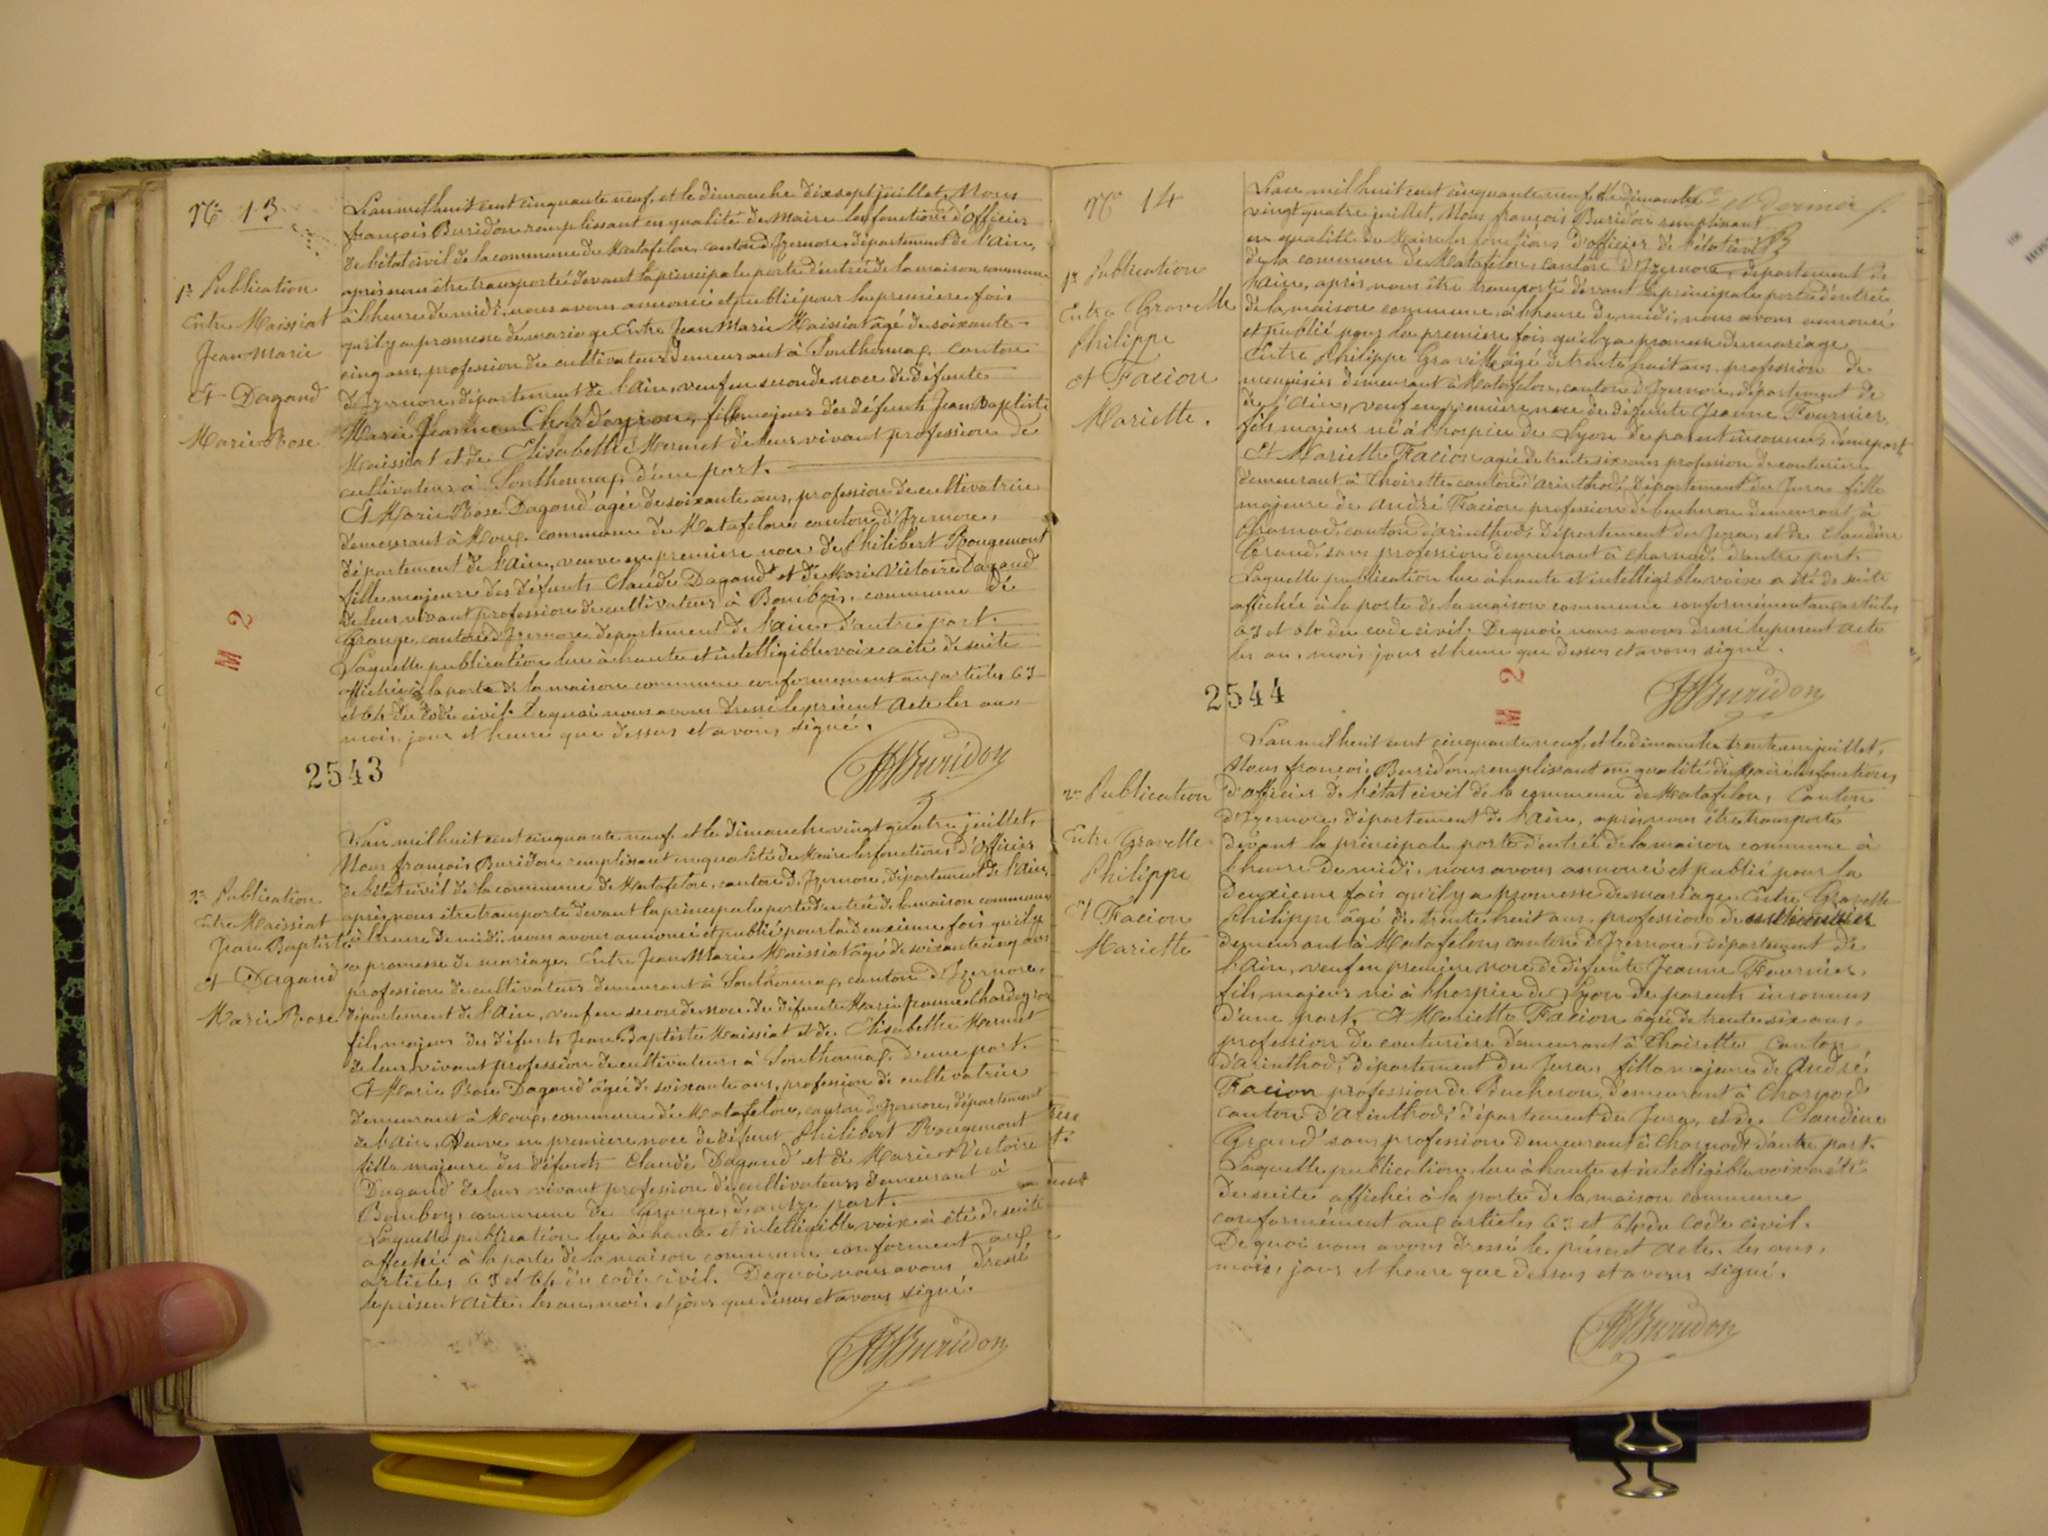 No 13
1re Publication
Entre Maissiat
Jean-Marie
Et Dagand
Marie Rose
L'an mil huit cent cinquante neuf et le dimanche dix sept juillet, Nous
françois Buridon remplissant en qualité de Maire les fonctions d'officier
de l'état civil de la commune de Matafelon, canton d'Izernore, département de l'Ain,
après nous être transporté devant la principale porte d'entrée de la maison commune
à l'heure de midi, nous avons annoncé et publié pour la première fois
qu'il y a promesse de mariage Entre Jean Marie Maissiat âgé de soixante-
cinq ans, profession de cultivateur demeurant à Sonthonnax canton
d'Izernore, département de l'Ain, veuf en seconde noce de défunte
Marie Jeanne Chardeyron, fils majeur des défunts Jean Baptiste
Maissiat et de Elisabeth Mermet de leur vivant profession de
cultivateurs à Sonthonnax d'une part.
Et Marie Rose Dagand âgée de soixante ans, profession de cultivatrice
demeurant à Moux commune de Matafelon canton d'Izernore,
département de l'Ain, veuve en première noce de Philibert Rougemont
fille majeure des défunts Claude Dagand et de Marie Victoire Dagand
de leur vivant profession de cultivateurs à Bombois, commune de
Grange, canton d'Izernore département de l'Ain d'autre part.
Laquelle publication lue à haute et intelligible voix a été de suite
affichée à la porte de la maison commune conformement aux articles 63
et 64 du code civil. De quoi nous avons dressé le présent acte les an,
mois, jour et heure que dessus et avons signé.
Buridon
2543
M 2
2e Publication
Entre Maissiat
Jean Baptiste
et Dagand
Marie Rose
L'an mil huit cent cinquante neuf et le dimanche vingt quatre juillet,
Nous françois Buridon remplissant en qualité de Maire les fonctions d'officier
de l'état civil de la commune de Matafelon, canton d'Izernore, département de l'Ain,
après nous être transporté devant la principale porte d'entrée de la maison commune
à l'heure de midi, nous avons annoncé et publié pour la deuxieme fois qu'il y
a promesse de mariage, Entre Jean Marie Maissiat âgé de soixante cinq ans
profession de cultivateur demeurant à Sonthonnax, canton d'Izernore,
département de l'Ain, veuf en seconde noce de défunte Marie Jeanne Chardeyron
fils majeur des défunts Jean Baptiste Maissiat et de Elisabeth Mermet
de leur vivant profession de cultivateurs à Sonthonnax d'une part.
Et Marie Rose Dagand âgée de soixante ans, profession de cultivatrice
demeurant à Moux, commune de Matafelon, canton d'Izernore, département
de l'Ain, Veuve en première noce de défunt Philibert Rougemont
fille majeure des défunts Claude Dagand et de Marie Victoire
Dagand de leur vivant profession de cultivateurs demeurant à
Bombois, commune de Grange, d'autre part.
Laquelle publication lue à haute et intelligible voix a été de suite
affichée à la porte de la maison commune conforment aux
articles 63 et 64 du code civil. De quoi nous avons dressé
le présent acte, les an, mois, et jour que dessus et avons signé.
Buridon
No 14
1re Publication
Entre Gravelle
Philippe
et Facion
Mariette.
L'an mil huit cent cinquante neuf et le dimanche
vingt quatre juillet, Nous françois Buridon remplissant
en qualité de Maire les fonctions d'officier de l'état civil
de la commune de Matafelon, canton d'Izernore, département de
l'Ain, après nous être transporté devant la principale porte d'entrée
de la maison commune, à l'heure de midi, nous avons annoncé
et publié pour la première fois qu'il y a promesse de mariage
Entre Philippe Gravelle âgé de trente huit ans, profession de
menuisier demeurant à Matafelon, canton d'Izernore, département de
de l'Ain, veuf en première noce de défunte Jeanne Fournier,
fils majeur né à l'hospice de Lyon de parents inconnus, d'une part
Et Mariette Facion agée de trente six ans profession de couturière
demeurant à Thoirette canton d'Arinthod, département du Jura fille
majeure de André Facion profession de bucheron demeurant à
Charnod, canton d'Arinthod, département du Jura, et de Claudine
Grand sans profession demeurant à Charnod, d'autre part.
Laquelle publication lue à haute et intelligible voix a été de suite
affichée à la porte de la maison commune conformément aux articles
63 et 64 du code civil. De quoi nous avons dressé le présent acte
les an, mois, jour et heure que dessus et avons signé.
Buridon
2544
M 2
2e Publication
Entre Gravelle
Philippe
et Facion
Mariette
L'an mil huit cent cinquante neuf, et le dimanche trente un juillet,
Nous françois Buridon, remplissant en qualité de Maire les fonctions
d'officier de l'état civil de la commune de Matafelon, Canton
d'Izernore, département de l'Ain, après nous être transporté
devant la principale porte d'entrée de la maison commune à
l'heure de midi, nous avons annoncé et publié pour la
deuxieme fois qu'il y a promesse de mariage Entre Gravelle
Philippe âgé de trente huit ans, profession de menuisier
demeurant à Matafelon, canton d'Izernore, département de
l'Ain, veuf en première noce de défunte Jeanne Fournier,
fils majeur né à l'hospice de Lyon de parents inconnus
d'une part, Et Mariette Facion âgée de trente six ans,
profession de couturiere demeurant à Thoirette Canton
d'Arinthod, département du Jura, fille majeure de André
Facion profession de Bucheron, demeurant à Charnod
canton d'Arinthod, département du Jura, et de Claudine
Grand sans profession demeurant à Charnod, d'autre part.
Laquelle publication lue à haute et intelligible voix a été
de suite affichée à la porte de la maison commune
conformément aux articles 63 et 64 du code civil.
De quoi nous avons dressé le présent acte, les ans,
mois, jours et heure que dessus et avons signé.
Buridon